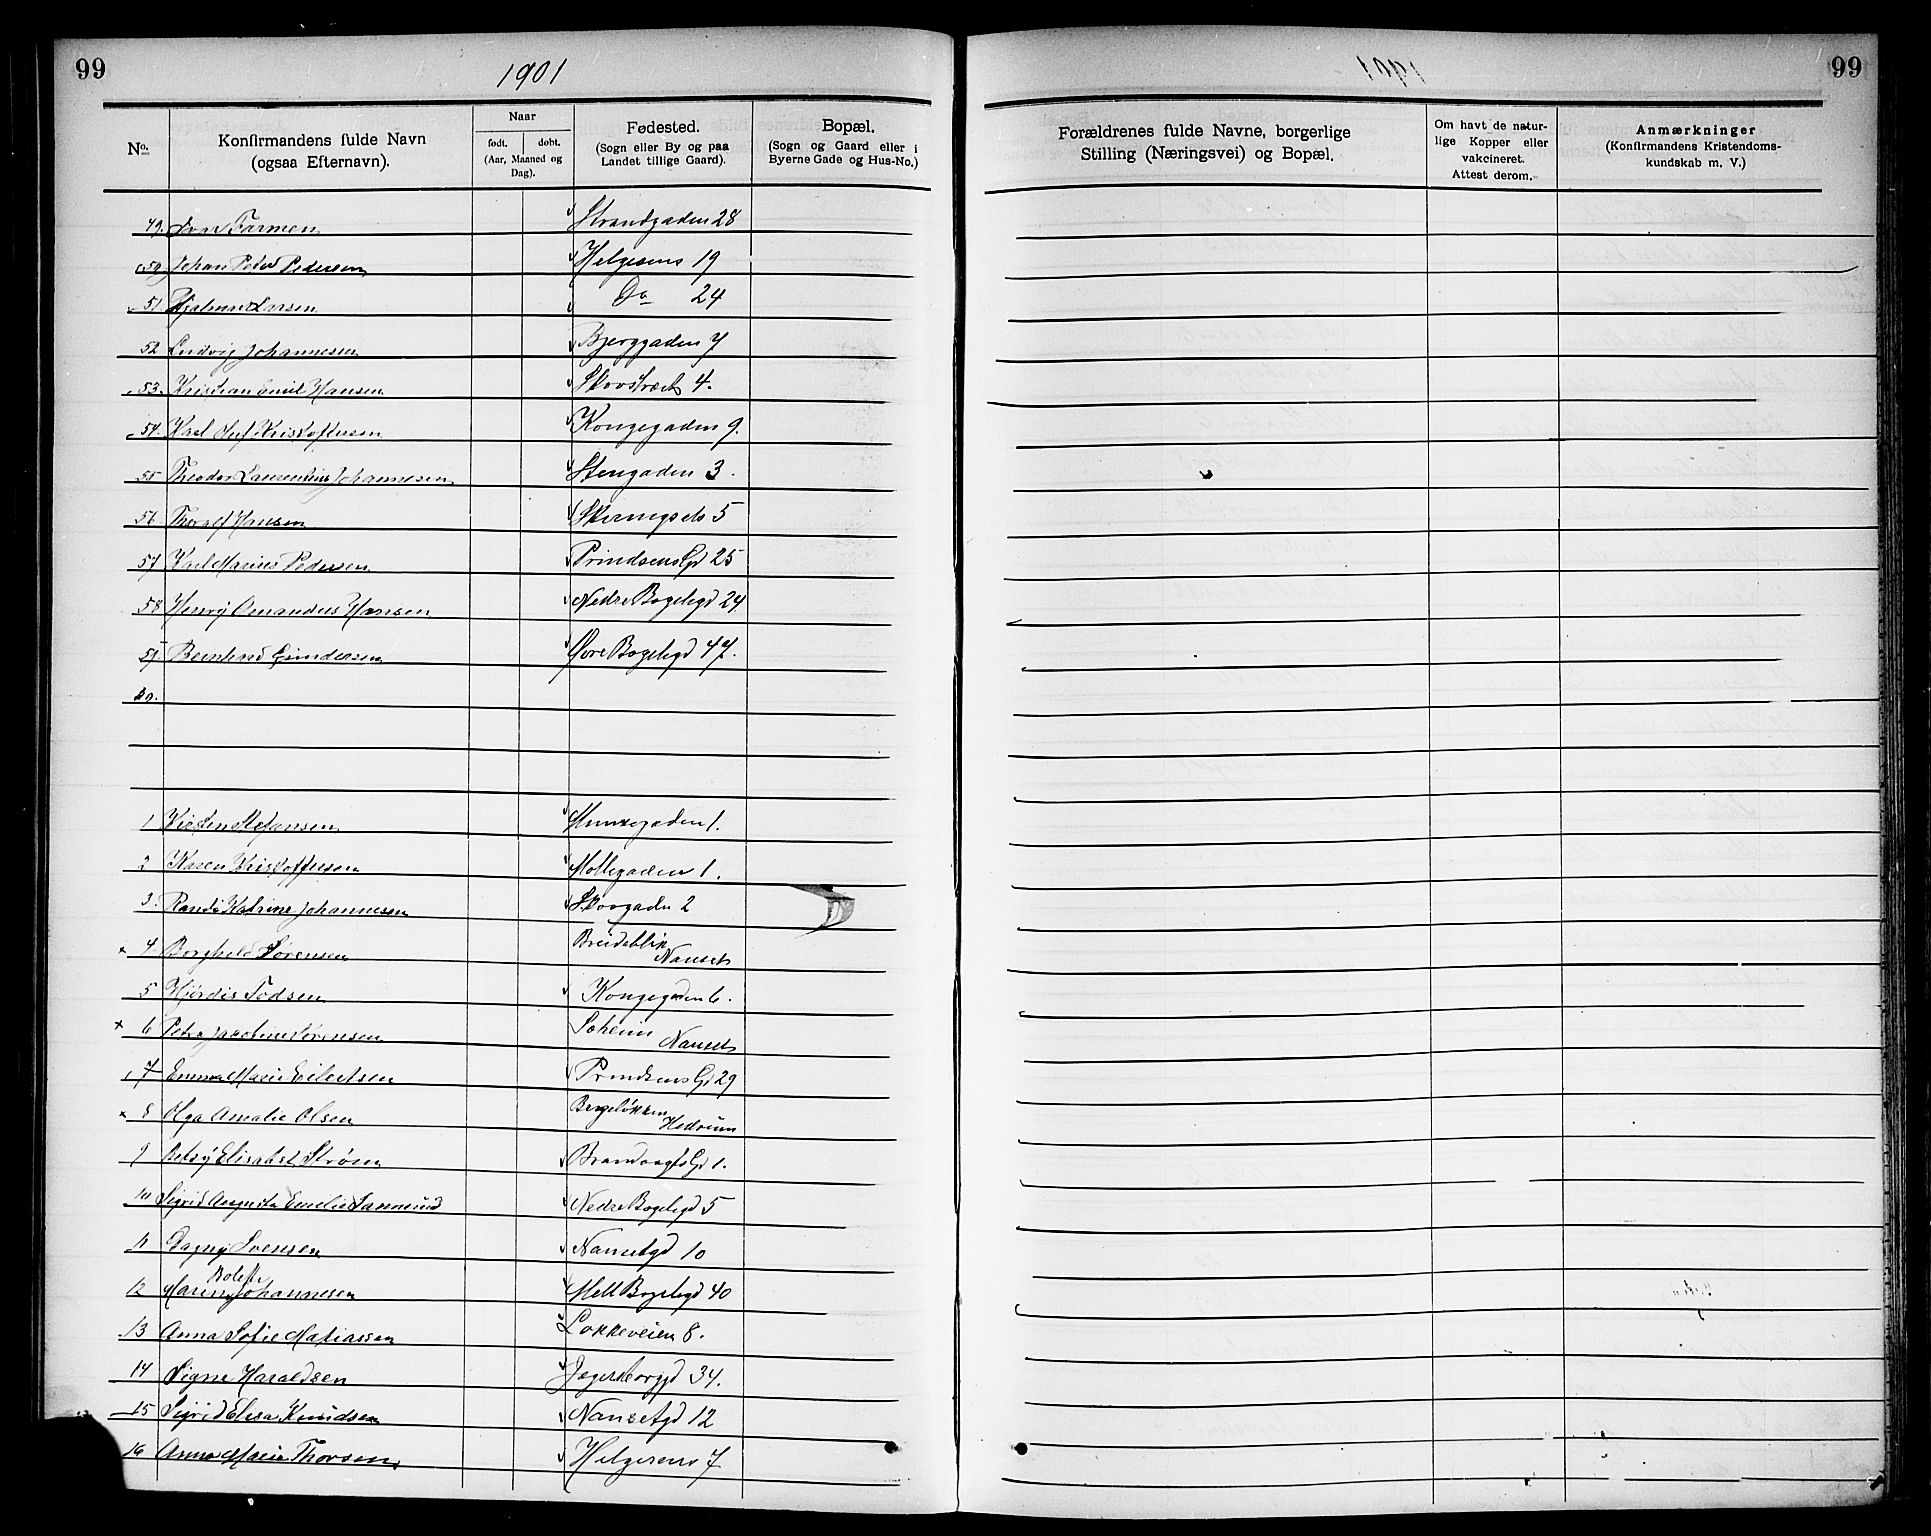 99
1901
No.
Konfirmandens fulde Navn
(ogsaa Efternavn).
Naar
født. døbt.
(Aar, Maaned og Dag).
Fødested.
(Sogn eller By og paa
Landet tillige Gaard).
Bopæl.
(Sogn og Gaard eller i
Byerne Gade og Hus-No.)
49. Ivar Farmen Strandgaden 28
50 Johan Peder Pedersen Helgesens 19
51 Hjalmar Larsen Do 24
52 Ludvig Johannesen Bjerggaden 7
53. Kristian Emil Hansen 4.
54. Karl Oluf Kristoffersen Kongegaden 9.
55 Theodor Laurentius Johannesen Stengaden 3.
56 Thoralf Hansen 5
57 Karl Marius Pedersen Prindsens Gd 25
58 Henry Amandus Hansen Nedre Bøgeligd 24
59 Bernhard Gundersen Øvre Bøgeligd 47.
60.
1 Kirsten Stefansen 1.
2 Karen Kristoffersen Møllegaden 1.
3. Randi Katrine Johannesen Skovgaden 2
x 4. Borghild Sørensen Breideblik
Nanset
5 Hjørdis Todsen Kongegaden 6.
x 6 Petra Jacobine Sørensen Solheim
Nanset
7 Emma Marie Eilertsen Prindsens Gd 29
x 8 Olga Amalie Olsen Bergeløkken
Hedrum
9 Betsy Elisabet Strøm Brandvagts Gd 1.
10 Sigrid Augusta Emelie Nedre Bøgeligd 5
11 Dagny Svensen Nansetgd 10
Bolette
12 Maren Johannesen Mell Bøgeligd 40
13 Anna Sofie Matiassen Løkkeveien 8.
14 Signe Haraldsen Jegersborggd 34.
15 Sigrid Elisa Knudsen Nansetgd 12
16 Anna Marie Thorsen Helgesens 7
1901
99
Forældrenes fulde Navne, borgerlige
Stilling (Næringsvei) og Bopæl.
Om havt de natur-
lige Kopper eller
vakcineret.
Attest derom.
Anmærkninger
(Konfirmandens Kristendoms-
kundskab m. V.)